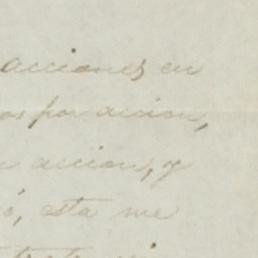 acciones en
os por accion,
n accion, y
ó, esta me